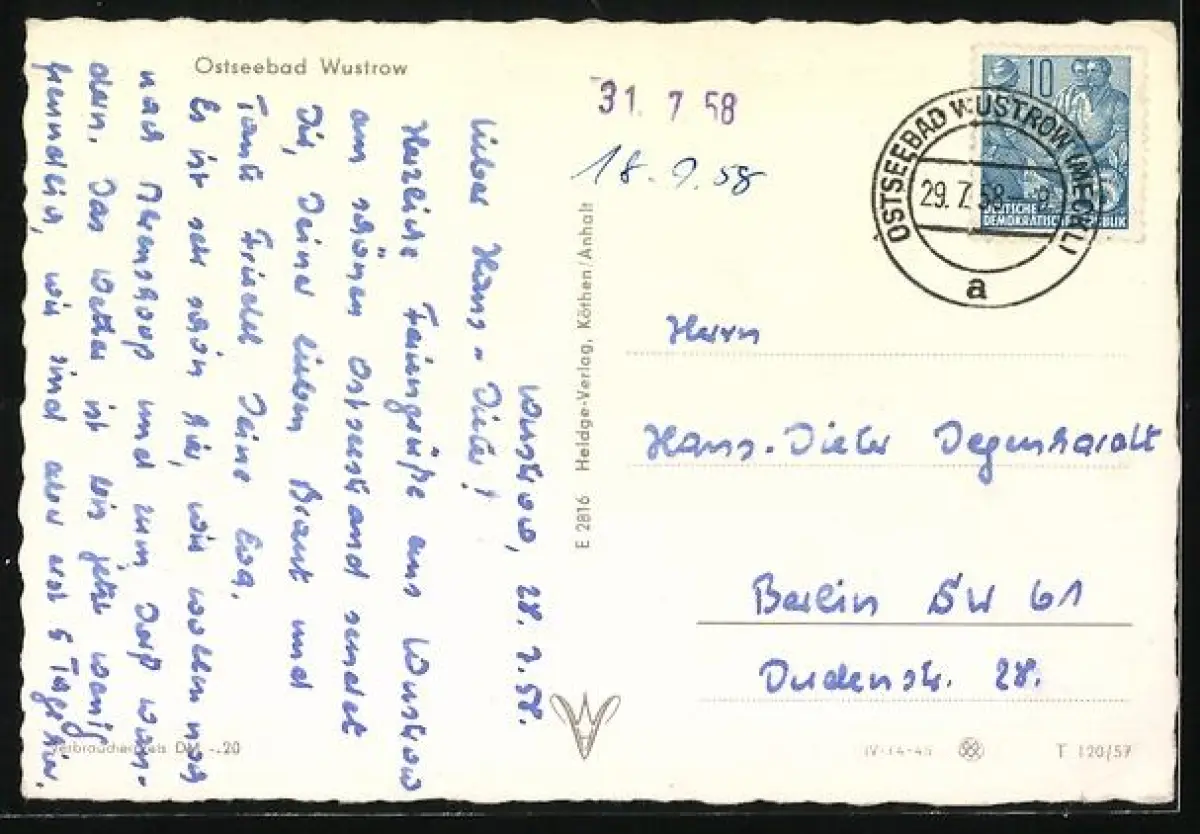 Ostseebad Wustrow
31. 7 58
18.9.58
10
DEUTSCHE
DEMOKRATISCHE REPUBLIK
OSTSEEBAD WUSTROW (MECKL)
29. 7. 58
a
Wustrow, 28.7.58.
Lieber Hans-Dieter!
Herzliche Feriengrüße aus Wustrow
am schönen Ostseestrand sendet
Dir, Deiner lieben Braut und
Tante Friedel Deine Eva.
Es ist sehr schön hier, wir wollen noch
nach Ahrenshoop und zum Darß wan-
dern. Das Wetter ist bis jetzt wenig
freundlich, wir sind aber erst 5 Tage hier.
E 2816 Heldge-Verlag, Köthen/Anhalt
Herrn
Hans-Dieter Degenhardt
Berlin SW 61
Dudenstr. 28.
Verbraucherpreis DM -.20
IV-14-45
T 120/57